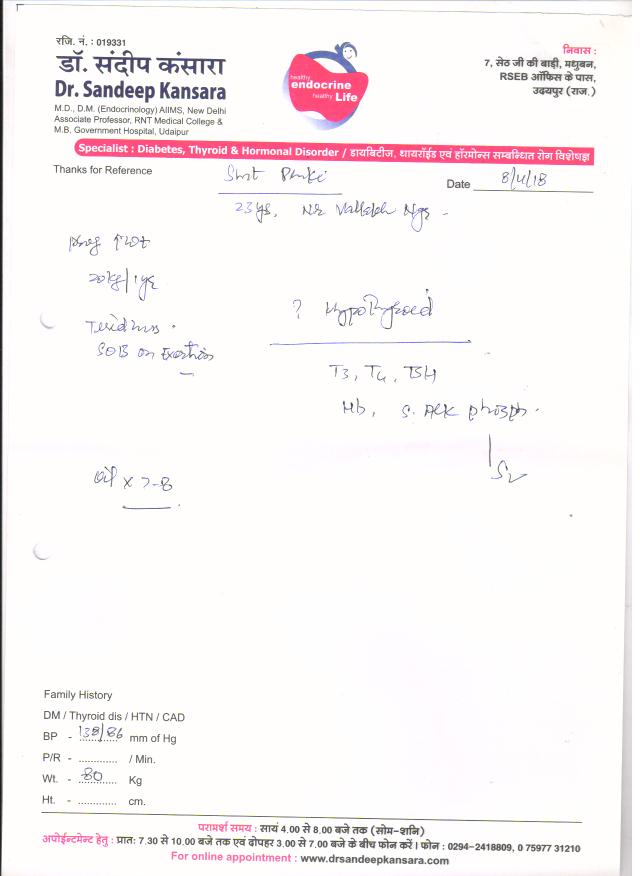 रजि. नं. : 019331
डॉ. संदीप कंसारा
Dr. Sandeep Kansara
M.D., D.M. (Endocrinology) AIIMS, New Delhi
Associate Professor, RNT Medical College &
M.B. Government Hospital, Udaipur
healthy
endocrine
healthy Life
निवास :
7, सेठ जी की बाड़ी, मधुबन,
RSEB ऑफिस के पास,
उदयपुर (राज.)
Specialist : Diabetes, Thyroid & Hormonal Disorder / डायबिटीज, थायरॉईड एवं हॉरमोन्स सम्बन्धित रोग विशेषज्ञ
Thanks for Reference
Smt
Date 8/4/18
23 ys,
↑wt
20 kg/1yr
SOB on Exertion
? Hypothyroid
T3, T4, TSH
Hb, S. Alk phosph.
Oil x 7-8
Family History
DM / Thyroid dis / HTN / CAD
BP - 138/86 mm of Hg
P/R - ............. / Min.
Wt. - 80 Kg
Ht. - ............. cm.
परामर्श समय : सायं 4.00 से 8.00 बजे तक (सोम-शनि)
अपोईन्टमेन्ट हेतु : प्रातः 7.30 से 10.00 बजे तक एवं दोपहर 3.00 से 7.00 बजे के बीच फोन करें। फोन : 0294-2418809, 0 75977 31210
For online appointment : www.drsandeepkansara.com